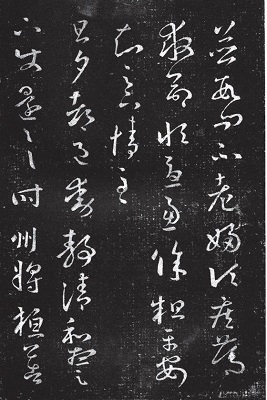 並數問不老婦頃疾篤
救命恆憂慮餘粗平安
知足下情至
旦夕都邑動靜清和想足
下使還具時州將桓公告